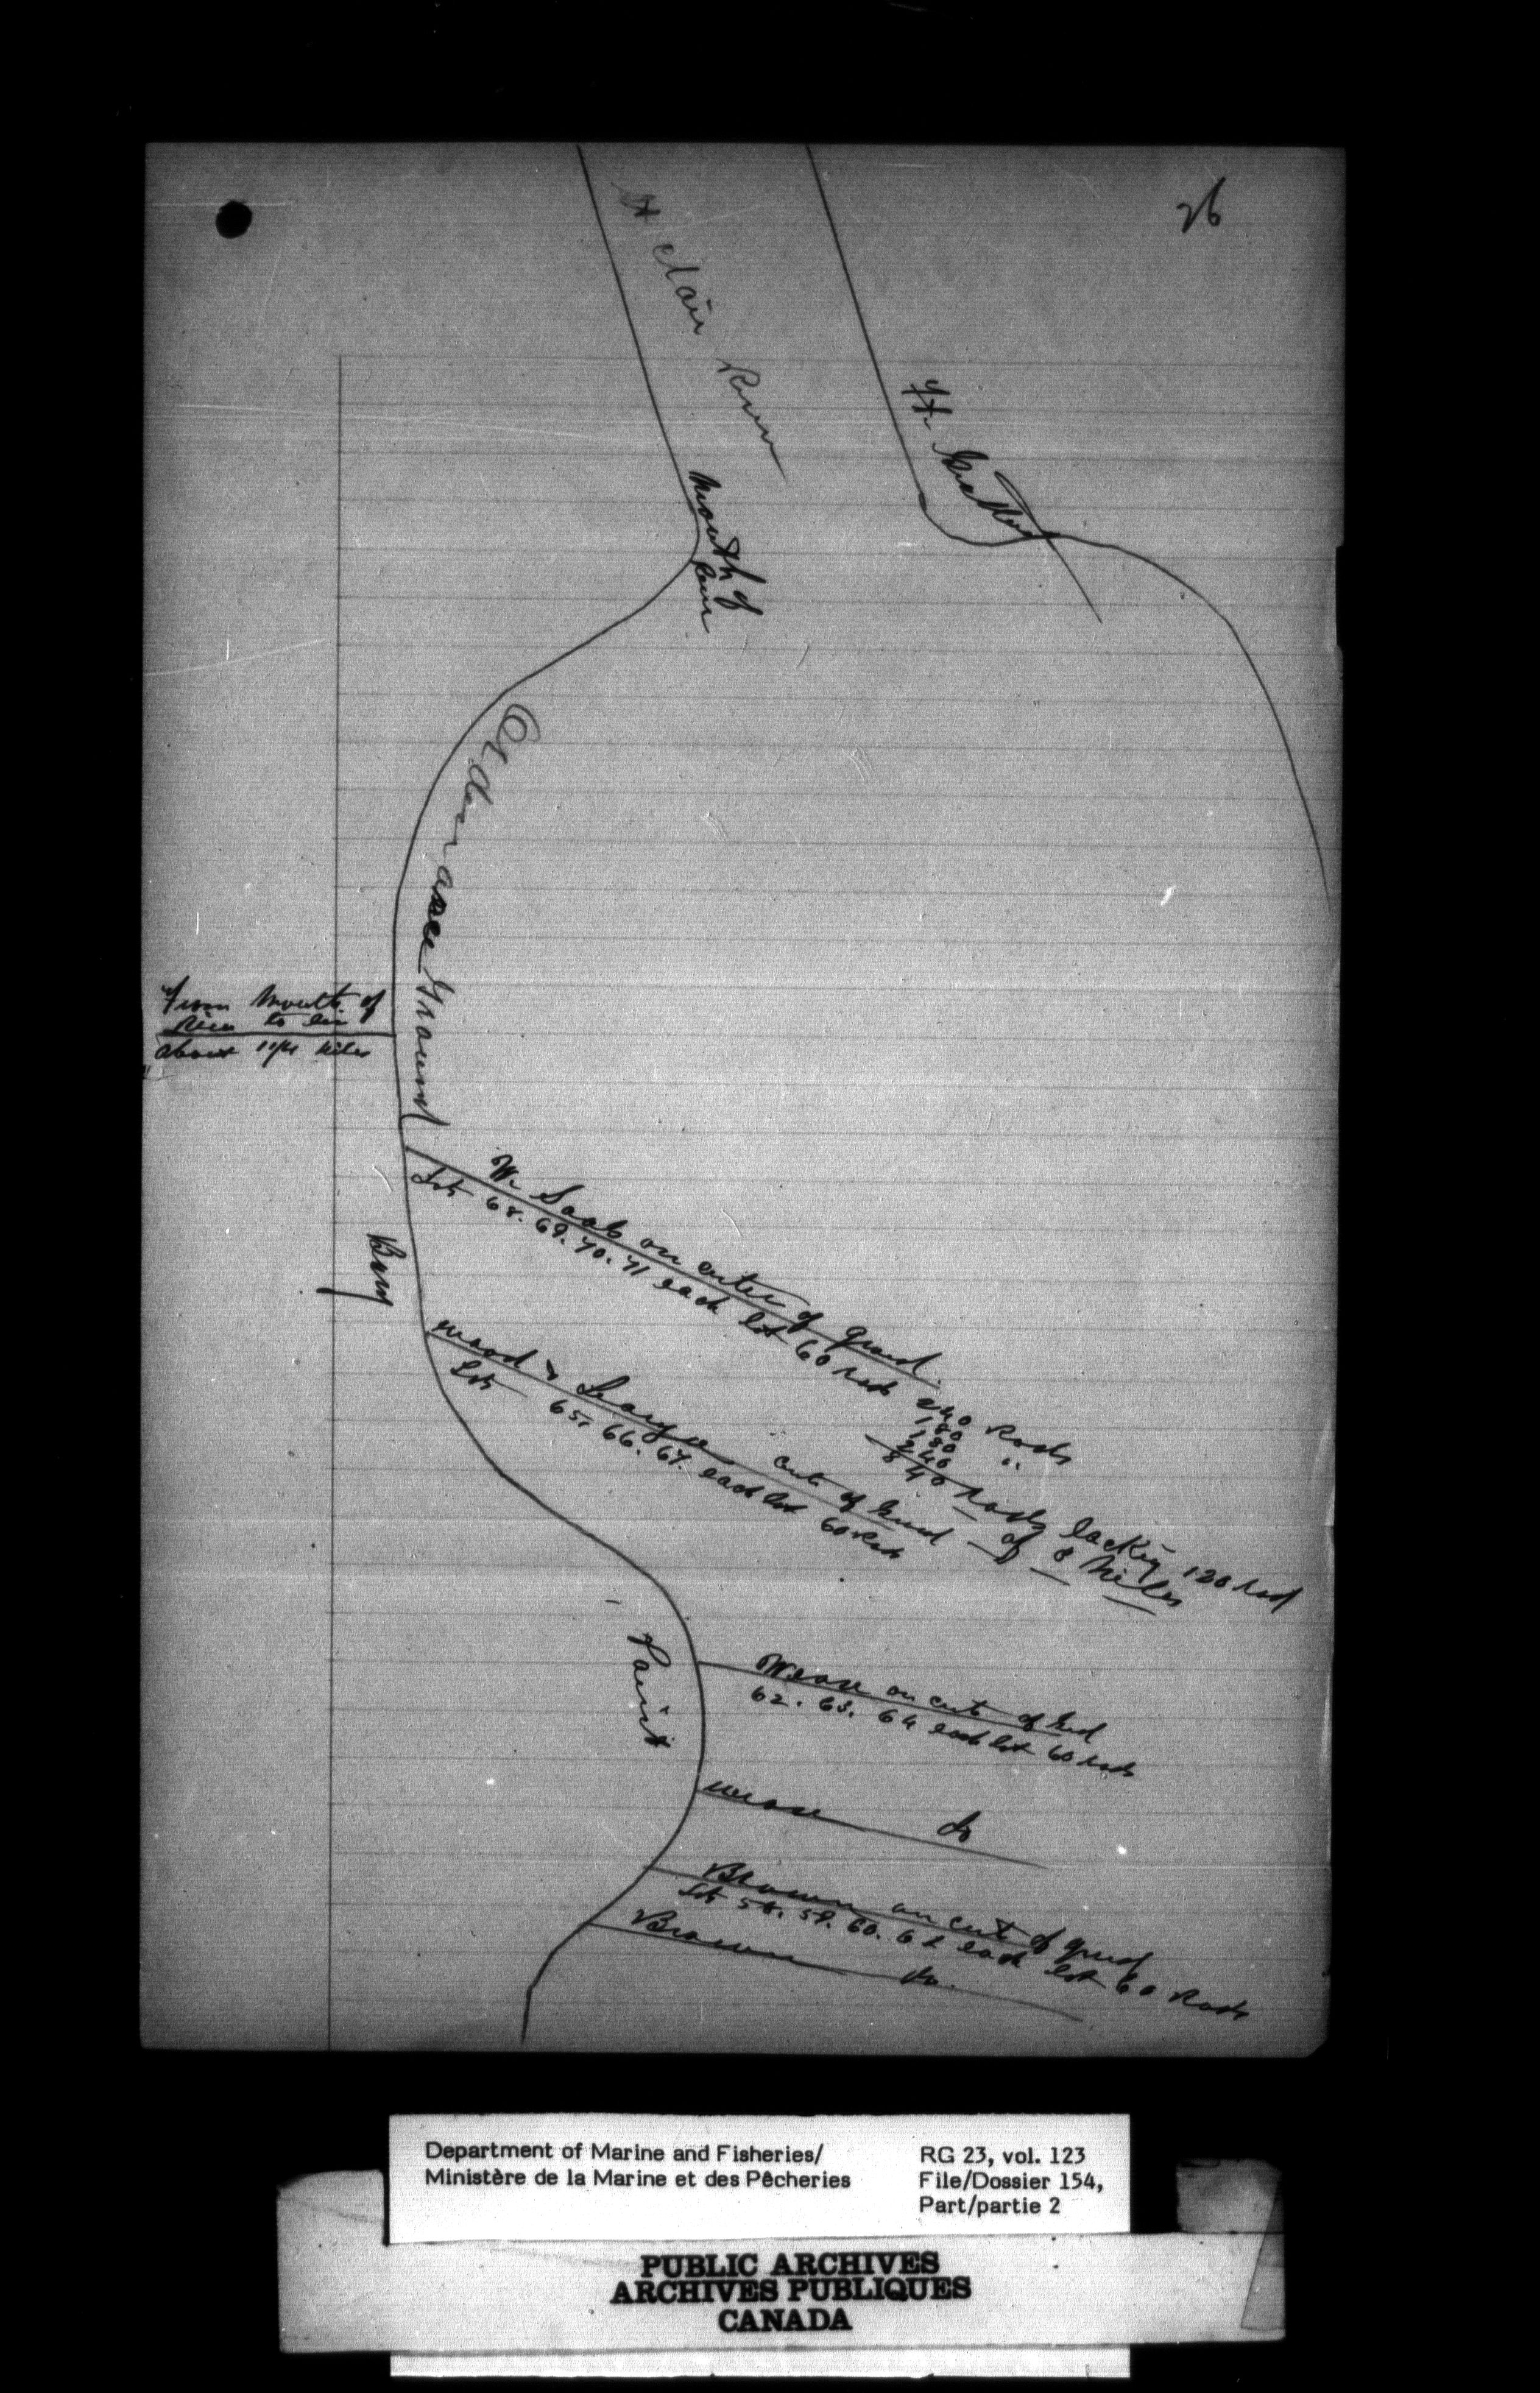 26
St Clair River
Ft. Gratiot
Mouth of
River
Old
Ground
From Mouth of
River to
about miles
W. Saab on center of Ground
Lots 68. 69. 70. 71 each lot 60 Rods
240 Rods
180
180 "
240
840 Rods lacking 120 Rod
of 3 Miles
Bay
Wood &
cent of Grund
Lots 65. 66. 67. each lot 60 Rods
Point
on cent of Grd
62. 63. 64 each lot 60 Rods
do
Brown on cent of Grund
Lots 58. 59. 60. 61 each lot 60 Rods
Brown do.
Department of Marine and Fisheries/
Ministère de la Marine et des Pêcheries
RG 23, vol. 123
File/Dossier 154,
Part/partie 2
PUBLIC ARCHIVES
ARCHIVES PUBLIQUES
CANADA